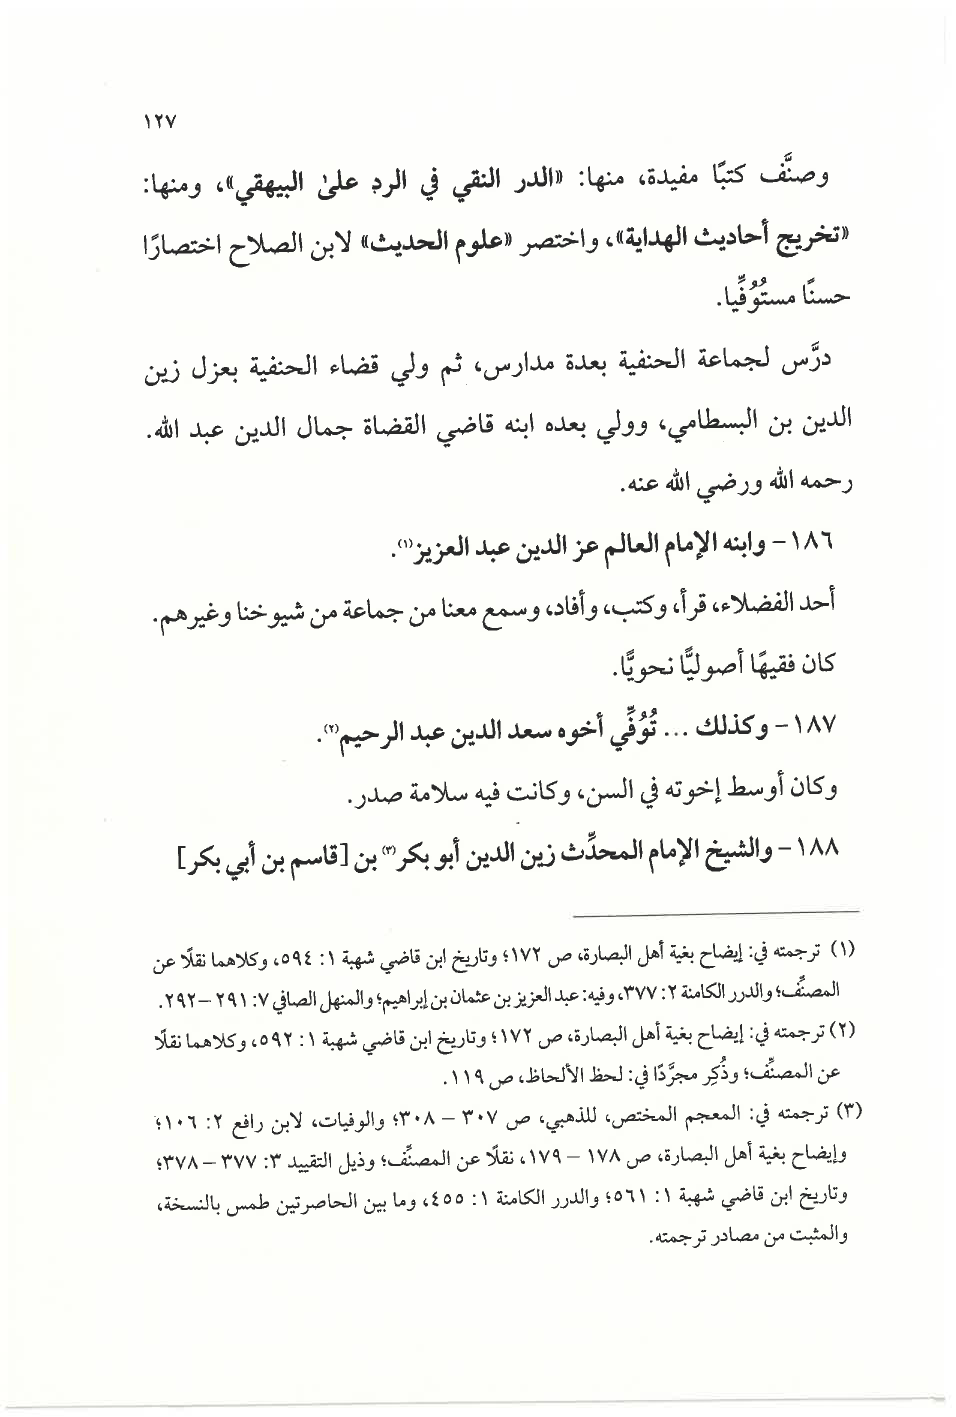 ١٢٧
وصنَّف كتبًا مفيدة، منها: «الدر النقي في الرد على البيهقي»، ومنها:
«تخريج أحاديث الهداية»، واختصر «علوم الحديث» لابن الصلاح اختصارًا
حسنًا مستُوُفِّيا.
درَّس لجماعة الحنفية بعدة مدارس، ثم ولي قضاء الحنفية بعزل زين
الدين بن البسطامي، وولي بعده ابنه قاضي القضاة جمال الدين عبد الله.
رحمه الله ورضي الله عنه.
١٨٦- وابنه الإمام العالم عز الدين عبد العزيز(١).
أحد الفضلاء، قرأ، وكتب، وأفاد، وسمع معنا من جماعة من شيوخنا وغيرهم.
كان فقيهًا أصوليًّا نحويًّا.
١٨٧- وكذلك ... تُوُفِّي أخوه سعد الدين عبد الرحيم(٢).
وكان أوسط إخوته في السن، وكانت فيه سلامة صدر.
١٨٨- والشيخ الإمام المحدِّث زين الدين أبو بكر(٣) بن [قاسم بن أبي بكر]
(١) ترجمته في: إيضاح بغية أهل البصارة، ص ١٧٢؛ وتاريخ ابن قاضي شهبة ١: ٥٩٤، وكلاهما نقلًا عن
المصنِّف؛ والدرر الكامنة ٢: ٣٧٧، وفيه: عبد العزيز بن عثمان بن إبراهيم؛ والمنهل الصافي ٧: ٢٩١ – ٢٩٢.
(٢) ترجمته في: إيضاح بغية أهل البصارة، ص ١٧٢؛ وتاريخ ابن قاضي شهبة ١: ٥٩٢، وكلاهما نقلًا
عن المصنِّف؛ وذُكِر مجرَّدًا في: لحظ الألحاظ، ص ١١٩.
(٣) ترجمته في: المعجم المختص، للذهبي، ص ٣٠٧ – ٣٠٨؛ والوفيات، لابن رافع ٢: ١٠٦؛
وإيضاح بغية أهل البصارة، ص ١٧٨ – ١٧٩، نقلًا عن المصنِّف؛ وذيل التقييد ٣: ٣٧٧ – ٣٧٨؛
وتاريخ ابن قاضي شهبة ١: ٥٦١؛ والدرر الكامنة ١: ٤٥٥، وما بين الحاصرتين طمس بالنسخة،
والمثبت من مصادر ترجمته.